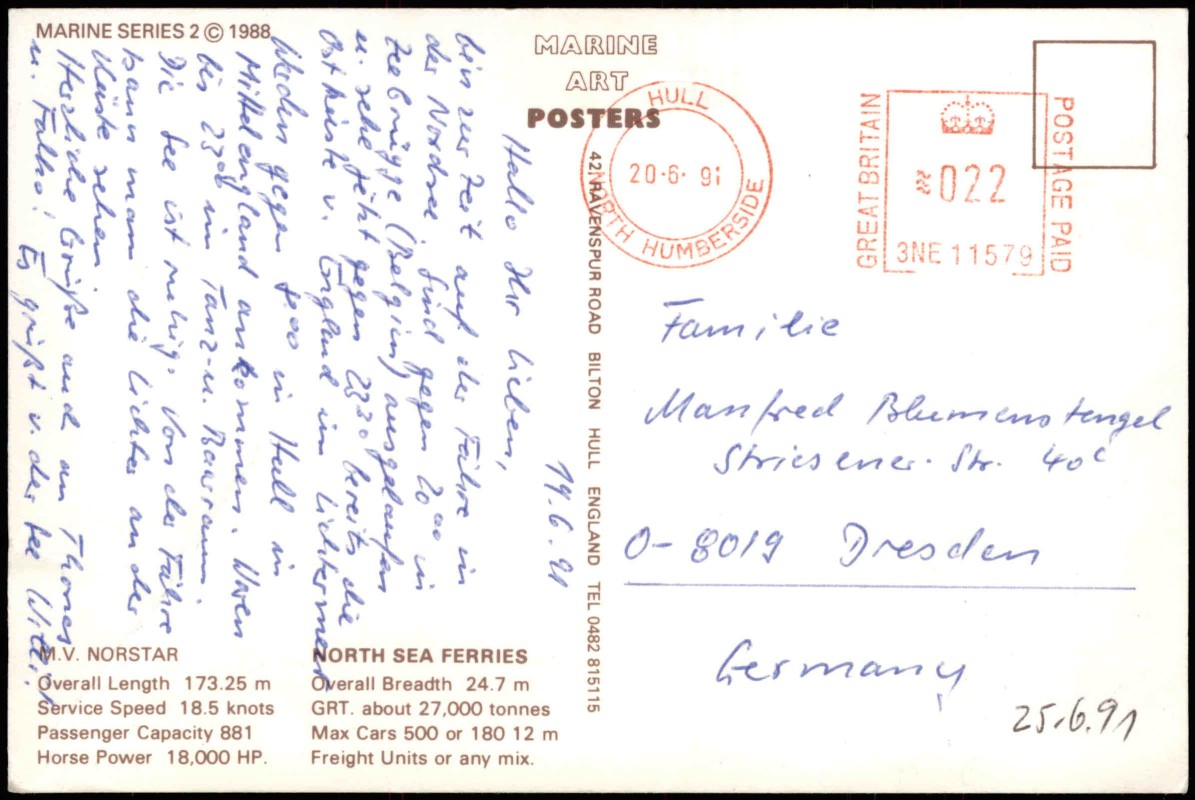 MARINE SERIES 2 © 1988
MARINE
ART
POSTERS
42 RAVENSPUR ROAD BILTON HULL ENGLAND TEL 0482 815115
19.6.91
Hallo Ihr lieben,
bin zur Zeit auf der Fähre in
der Nordsee. Sind gegen 20⁰⁰ in
Zeebrügge (Belgien) ausgelaufen
u. sehe jetzt gegen 23³⁰ bereits die
Ostküste v. England im Lichtermeer
Werden gegen 8⁰⁰ in Hull in
Mittelengland ankommen. Waren
bis 23⁰⁰ im Tanz- u. Barraum.
Die See ist ruhig. Von der Fähre
kann man die Lichter an der
Küste sehen.
Herzliche Grüße auch an Thomas
u. Falko! Es grüßt v. der See
M.V. NORSTAR
Overall Length 173.25 m
Service Speed 18.5 knots
Passenger Capacity 881
Horse Power 18,000 HP.
NORTH SEA FERRIES
Overall Breadth 24.7 m
GRT. about 27,000 tonnes
Max Cars 500 or 180 12 m
Freight Units or any mix.
HULL
20·6· 91
NORTH HUMBERSIDE
GREAT BRITAIN
022
3NE 11579
POSTAGE PAID
Familie
Manfred Blumenstengel
Striesener Str. 40c
O-8019 Dresden
Germany
25.6.91